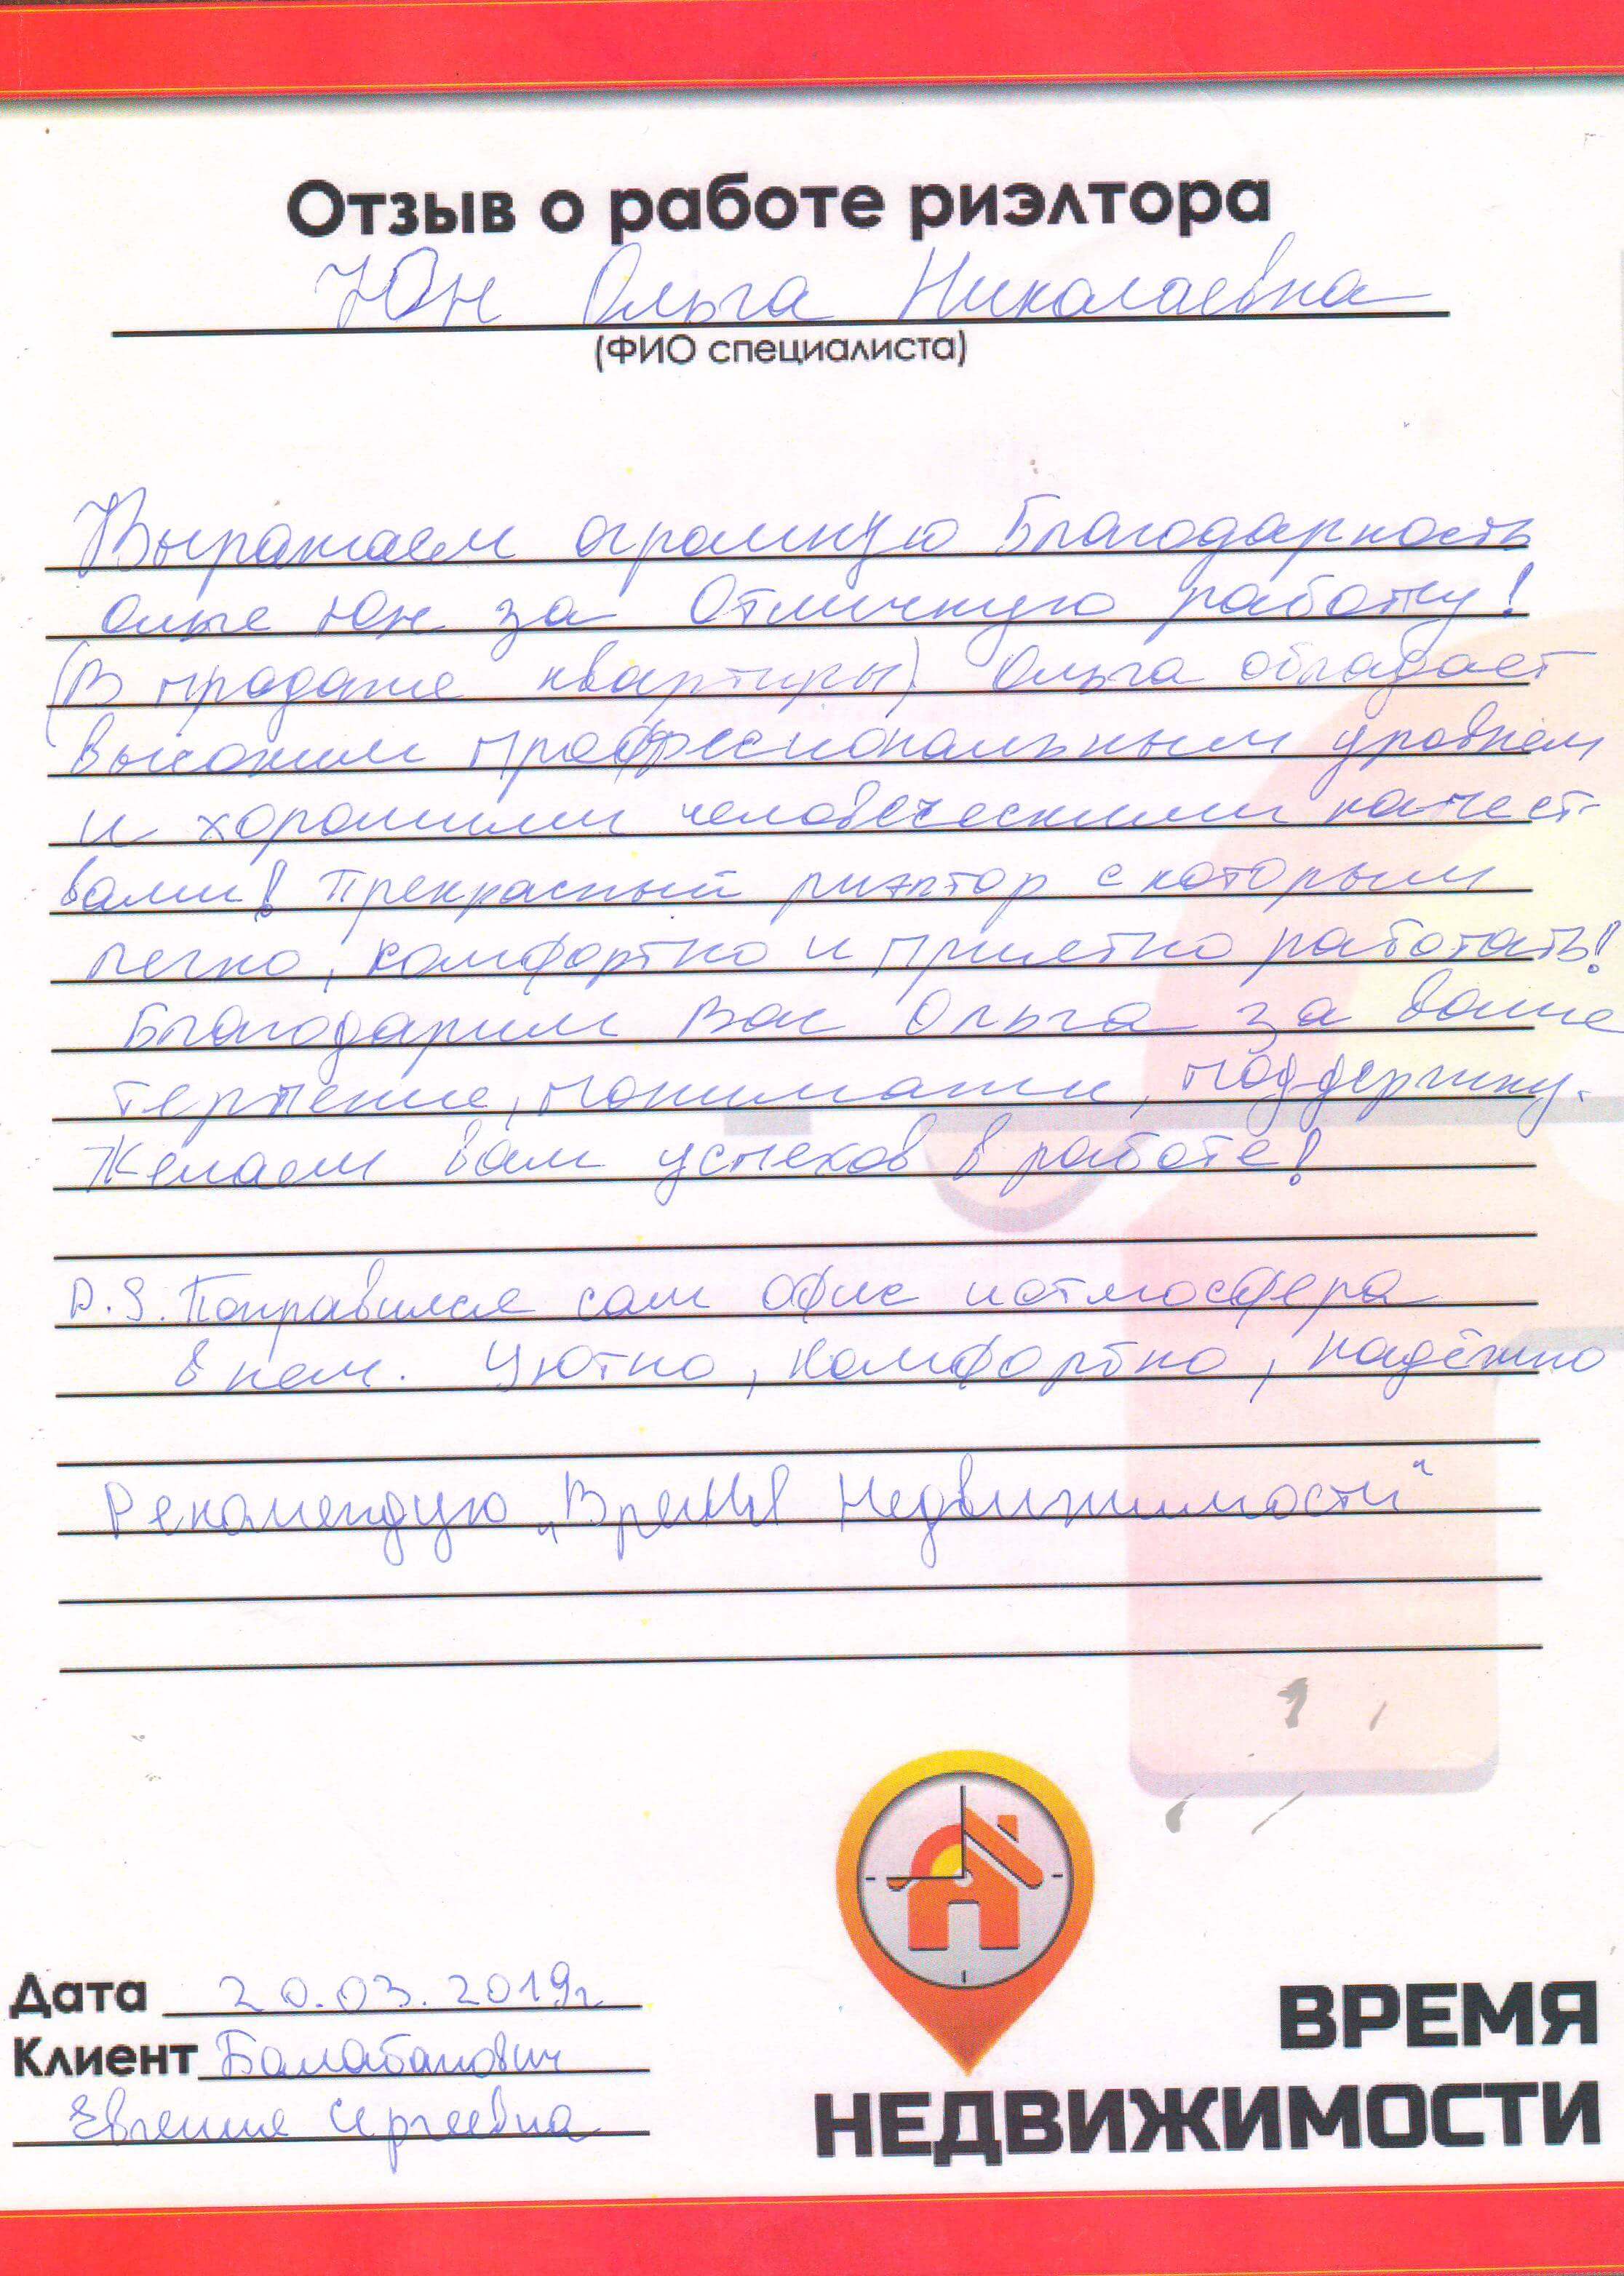 Отзыв о работе риэлтора
Юн Ольга Николаевна
(ФИО специалиста)
Выражаем огромную Благодарность
Ольге Юн за Отличную работу!
(В продаже квартиры) Ольга обладает
высоким профессиональным уровнем
и хорошими человеческими качест-
вами! Прекрасный риэлтор с которым
легко, комфортно и приятно работать!
Благодарим Вас Ольга за ваше
терпение, понимание, поддержку.
Желаем вам успехов в работе!
P.S. Понравился сам офис и атмосфера
в нем. Уютно, комфортно, надёжно
Рекомендую „Время Недвижимости“
Дата 20.03.2019г
Клиент Балабанович
Евгения Сергеевна
ВРЕМЯ
НЕДВИЖИМОСТИ